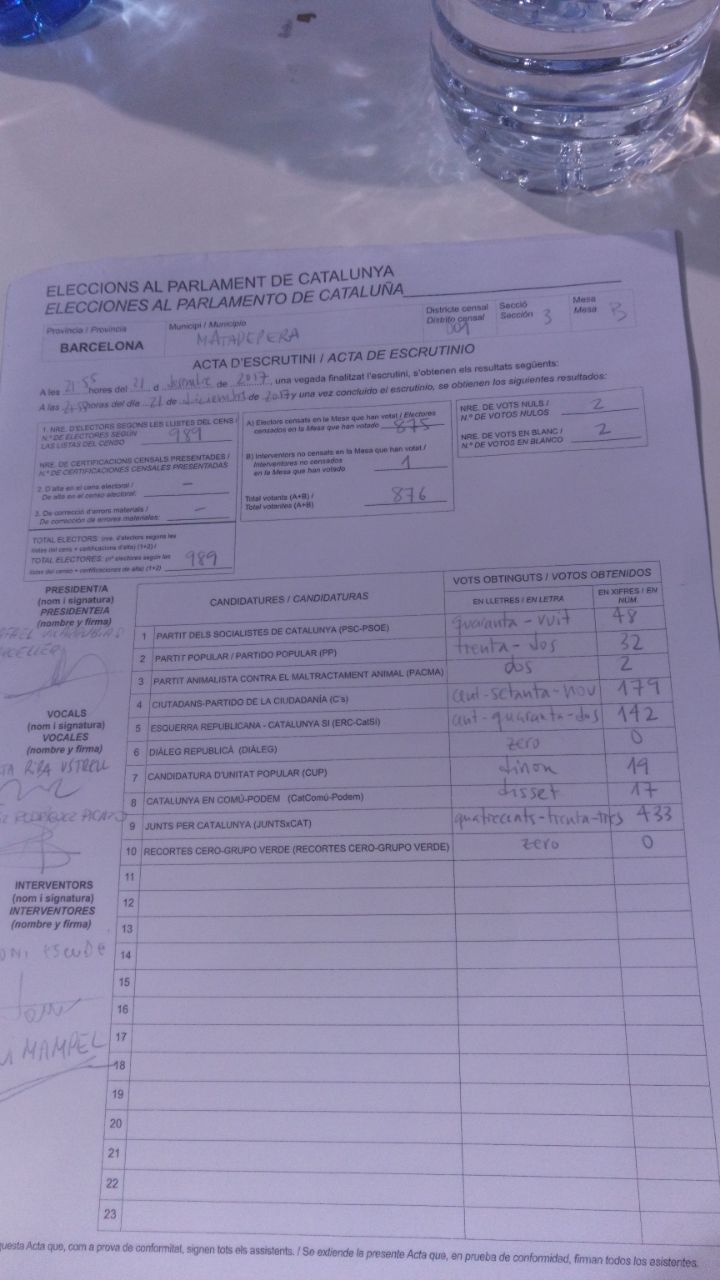 ELECCIONS AL PARLAMENT DE CATALUNYA
ELECCIONES AL PARLAMENTO DE CATALUÑA
Província / Provincia
BARCELONA
Municipi / Municipio
MATADEPERA
Districte censal
Distrito censal
001
Secció
Sección 3
Mesa
Mesa B
ACTA D'ESCRUTINI / ACTA DE ESCRUTINIO
A les 21:55 hores del 21 d desembre de 2017, una vegada finalitzat l'escrutini, s'obtenen els resultats següents:
A las 21:55 horas del día 21 de diciembre de 2017 y una vez concluido el escrutinio, se obtienen los siguientes resultados:
1. NRE. D'ELECTORS SEGONS LES LLISTES DEL CENS /
N.º DE ELECTORES SEGÚN
LAS LISTAS DEL CENSO 989
NRE. DE CERTIFICACIONS CENSALS PRESENTADES /
N.º DE CERTIFICACIONES CENSALES PRESENTADAS
2. D'alta en el cens electoral /
De alta en el censo electoral: –
3. De correcció d'errors materials /
De corrección de errores materiales: –
TOTAL ELECTORS: (nre. d'electors segons les
llistes del cens + certificacions d'alta) (1+2) /
TOTAL ELECTORES: (nº electores según las
listas del censo + certificaciones de alta) (1+2) 989
A) Electors censats en la Mesa que han votat / Electores
censados en la Mesa que han votado 875
B) Interventors no censats en la Mesa que han votat /
Interventores no censados
en la Mesa que han votado 1
Total votants (A+B) /
Total votantes (A+B) 876
NRE. DE VOTS NULS /
N.º DE VOTOS NULOS 2
NRE. DE VOTS EN BLANC /
N.º DE VOTOS EN BLANCO 2
PRESIDENT/A
(nom i signatura)
PRESIDENTE/A
(nombre y firma)
VOCALS
(nom i signatura)
VOCALES
(nombre y firma)
RIBA USTRELL
RODRÍGUEZ PICAZO
INTERVENTORS
(nom i signatura)
INTERVENTORES
(nombre y firma)
ESCUDE
MAMPEL
CANDIDATURES / CANDIDATURAS
VOTS OBTINGUTS / VOTOS OBTENIDOS
EN LLETRES / EN LETRA
EN XIFRES / EN NÚM.
1 PARTIT DELS SOCIALISTES DE CATALUNYA (PSC-PSOE) quaranta-vuit 48
2 PARTIT POPULAR / PARTIDO POPULAR (PP) trenta-dos 32
3 PARTIT ANIMALISTA CONTRA EL MALTRACTAMENT ANIMAL (PACMA) dos 2
4 CIUTADANS-PARTIDO DE LA CIUDADANÍA (C's) cent-setanta-nou 179
5 ESQUERRA REPUBLICANA - CATALUNYA SI (ERC-CatSí) cent-quaranta-dos 142
6 DIÀLEG REPUBLICÀ (DIÀLEG) zero 0
7 CANDIDATURA D'UNITAT POPULAR (CUP) dinou 19
8 CATALUNYA EN COMÚ-PODEM (CatComú-Podem) disset 17
9 JUNTS PER CATALUNYA (JUNTSxCAT) quatrecents-trenta-tres 433
10 RECORTES CERO-GRUPO VERDE (RECORTES CERO-GRUPO VERDE) zero 0
11
12
13
14
15
16
17
18
19
20
21
22
23
questa Acta que, com a prova de conformitat, signen tots els assistents. / Se extiende la presente Acta que, en prueba de conformidad, firman todos los asistentes.